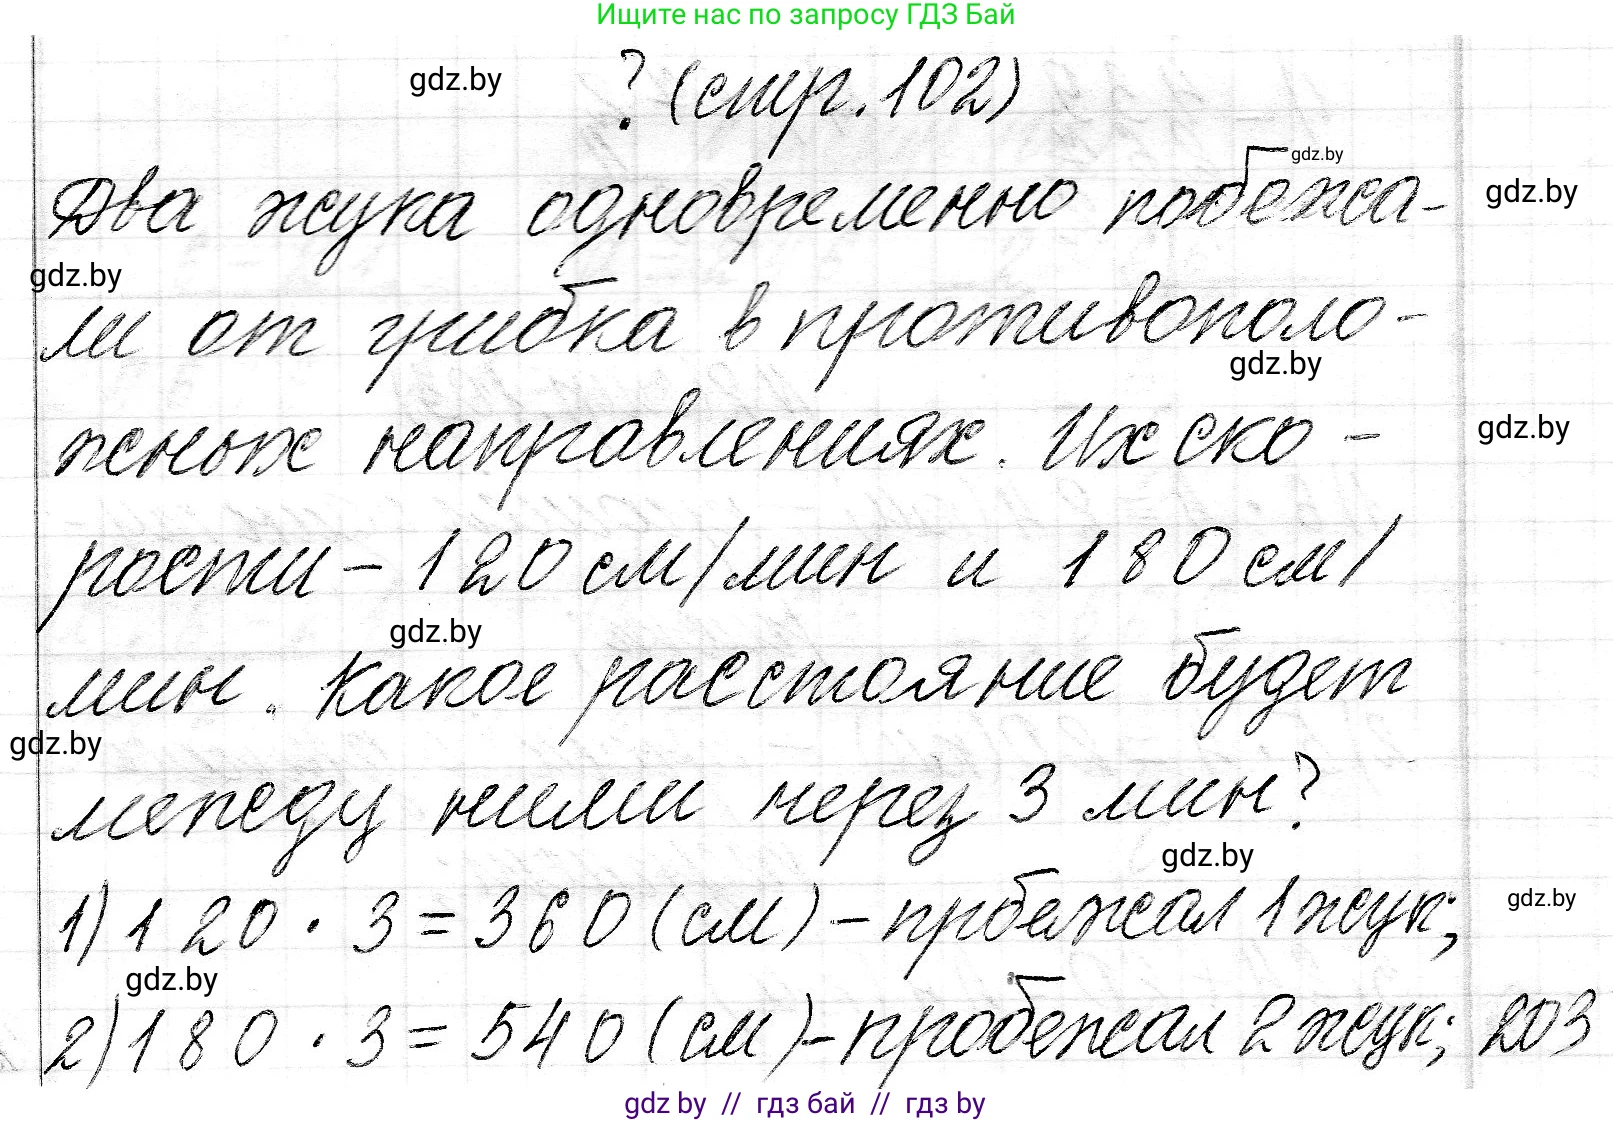 Ищите нас по запросу ГДЗ Бай
gdz.by
? (стр. 102)
gdz.by
Два жука одновременно побежа-
gdz.by
gdz.by
ли от грибка в противополо-
gdz.by
жных направлениях. Их ско-
gdz.by
рости - 120 см/мин и 180 см/
gdz.by
мин. Какое расстояние будет
gdz.by
между ними через 3 мин?
gdz.by
1) 120 · 3 = 360 (см) - пробежал 1 жук;
gdz.by
gdz.by
2) 180 · 3 = 540 (см) - пробежал 2 жук; 203
gdz by // гдз бай // гдз by